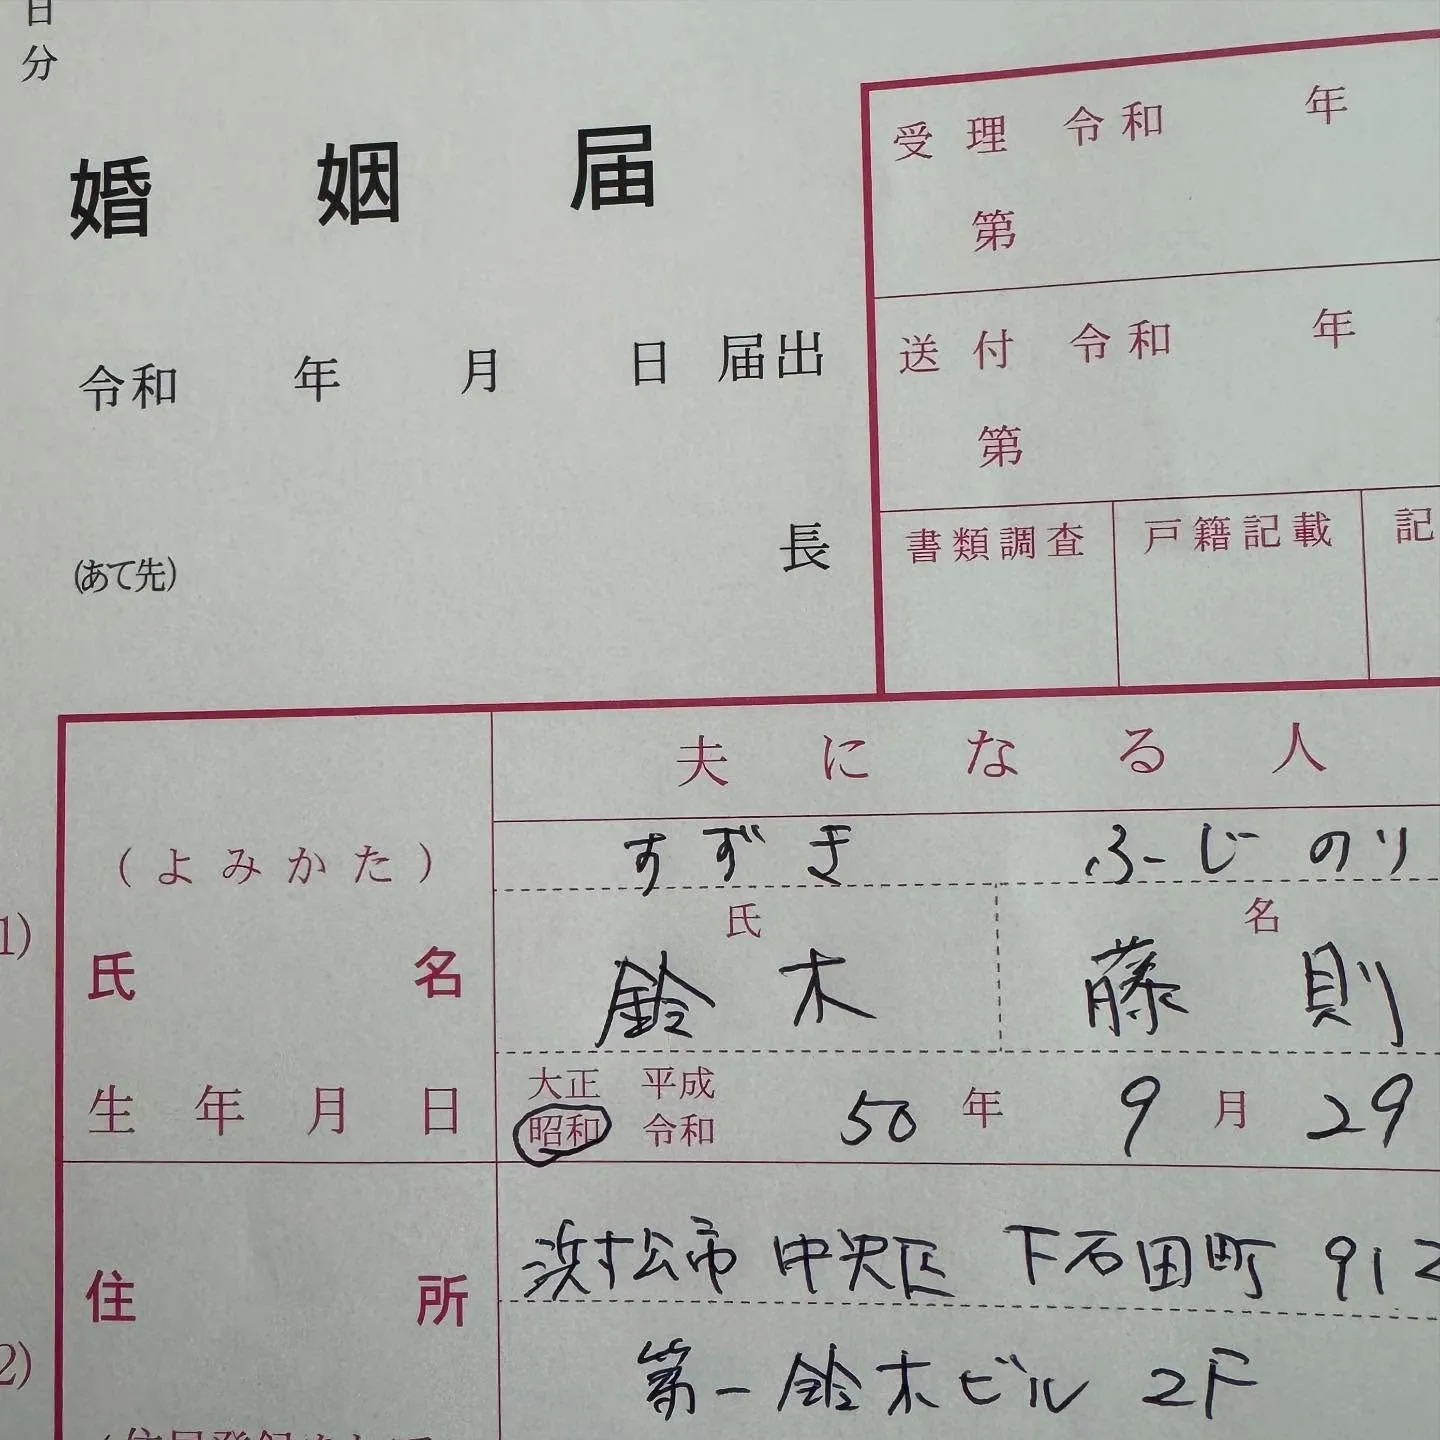 日
分
婚姻届
受理 令和 年
第
令和 年 月 日 届出
送付 令和 年
第
(あて先) 長
書類調査 戸籍記載 記
夫になる人
(よみかた) すずき ふーじのり
1)
氏名
氏 名
鈴木 藤則
生年月日
大正 平成
昭和 令和
50年 9月 29
住所
浜松市 中央区 下石田町 912
2)
第一鈴木ビル 2F